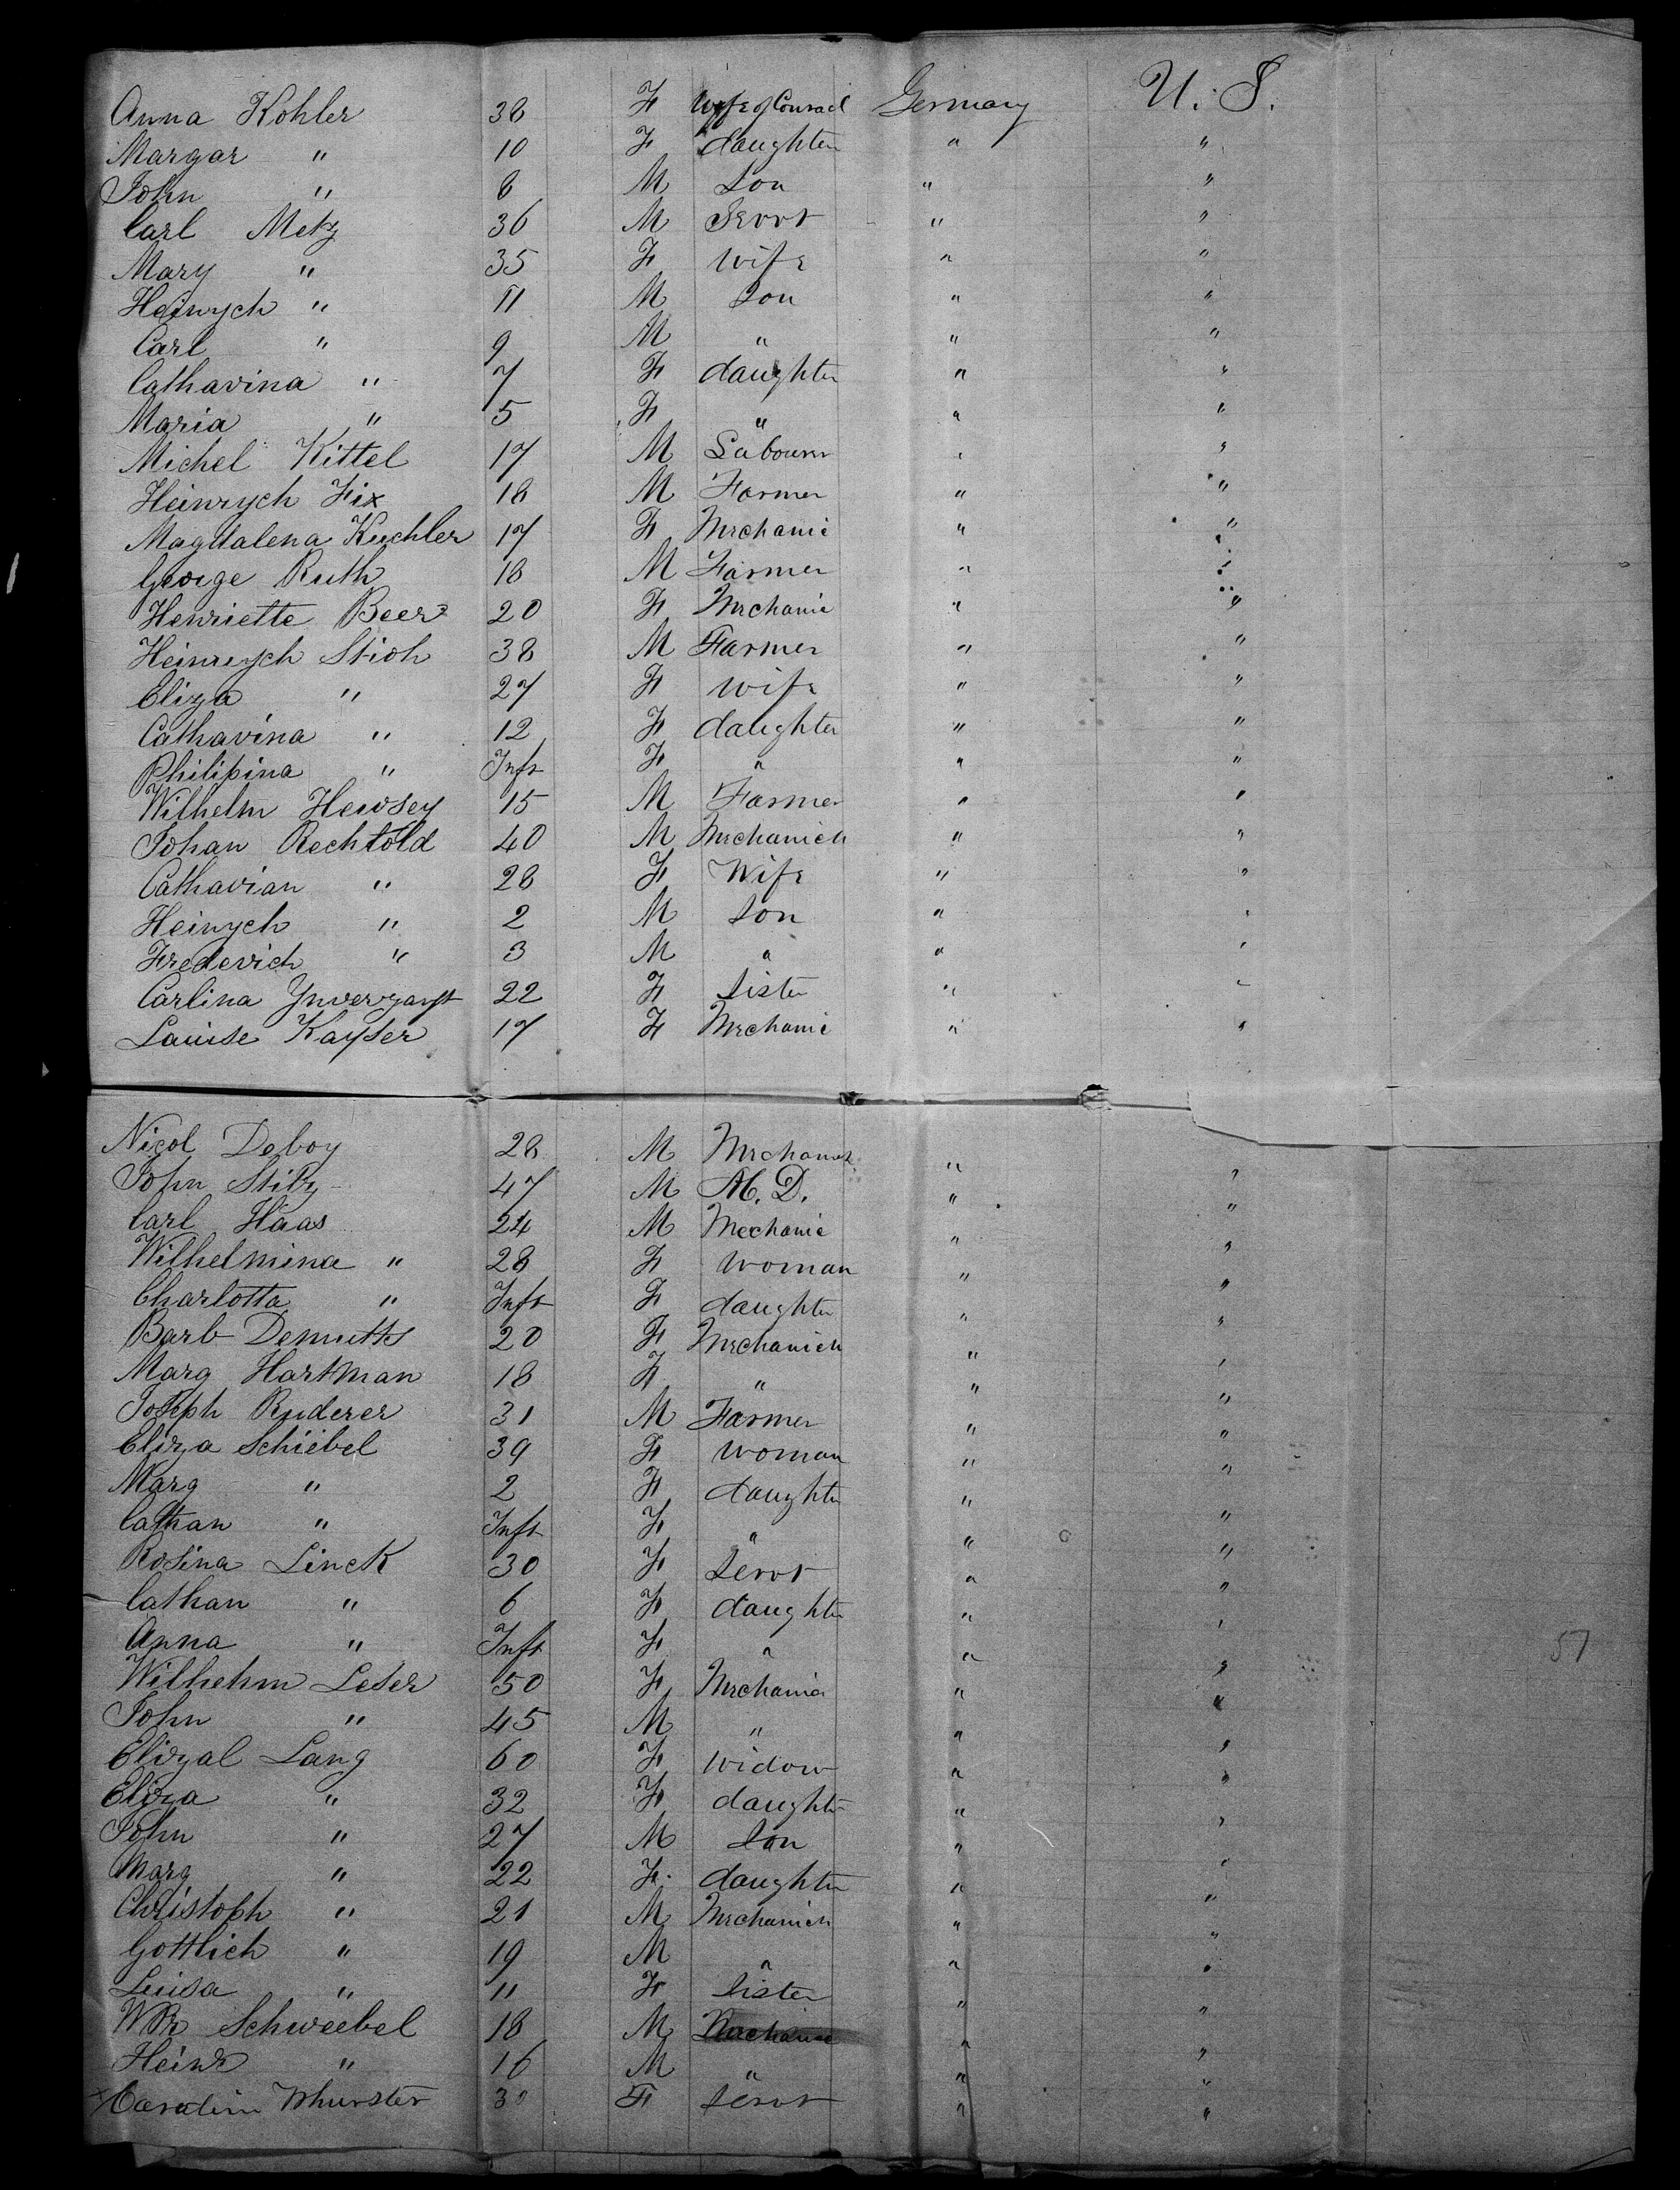 Anna Kohler 38 F Wife of Conrad Germany U. S.
Margar " 10 F daughter " "
John " 8 M Son " "
Carl Metz 36 M Servt " "
Mary " 35 F wife " "
Heinrych " 11 M Son " "
Carl " 9 M " " "
Catharina " 7 F daughter " "
Maria " 5 F " " "
Michel Kittel 17 M Labourer " "
Heinrych Fix 18 M Farmer " "
Magdalena Kuchler 17 F Mechanic " "
George Ruth 18 M Farmer " "
Henriette Beer 20 F Mechanic " "
Heinrych Stioh 38 M Farmer " "
Eliza " 27 F wife " "
Catharina " 12 F daughter " "
Philipina " Inft F " " "
Wilhelm Hewsey 15 M Farmer " "
Johan Rechtold 40 M Mechanich " "
Catharian " 28 F Wife " "
Heinych " 2 M Son " "
Frederich " 3 M " " "
Carlina 22 F Sister " "
Lauise Kayser 17 F Mechanic " "
Nicol Deboy 28 M Mechanich " "
John Stilz 47 M M. D. " "
Carl Haas 24 M Mechanic " "
Wilhelmina " 28 F woman " "
Charlotta " Inft F daughter " "
Barb Demuths 20 F Mechanich " "
Marg Hartman 18 F " " "
Joseph Ruderer 31 M Farmer " "
Eliza Schiebel 39 F woman " "
Marg " 2 F daughter " "
Cathan " Inft F " " "
Rosina Linck 30 F Servt " "
Cathan " 6 F daughter " "
Anna " Inft F " " "
57
Wilhelm Leser 50 F Mechanic " "
John " 45 M " " "
Elizal Lang 60 F widow " "
Eliza " 32 F daughter " "
John " 27 M Son " "
Marg " 22 F daughter " "
Christoph " 21 M Mechanich " "
Gottlich " 19 M " " "
Luisa " 11 F Sister " "
Schweebel 18 M Mechanic " "
Heinr " 16 M " " "
x Caralin Whurster 30 F Servt " "